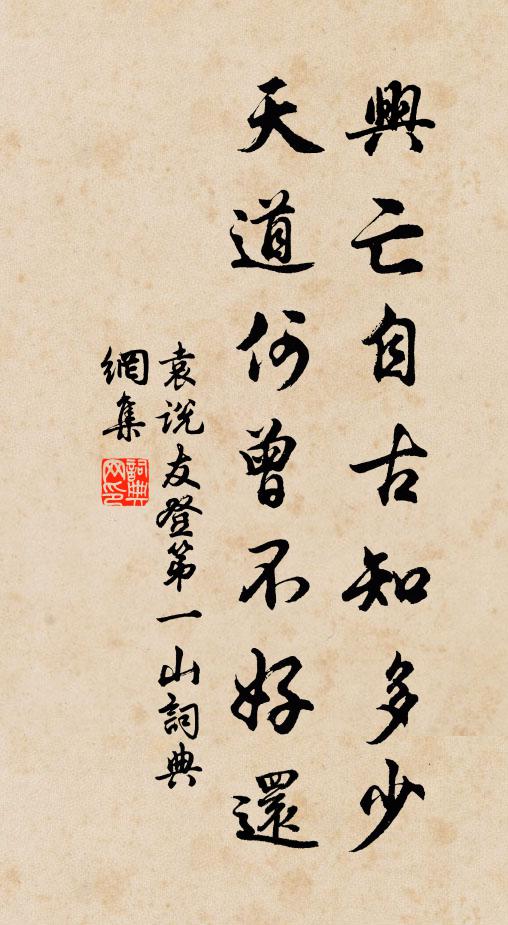 興亡自古知多少
天道何曾不好還
袁說友登第一山詞典
網集
詞典網印